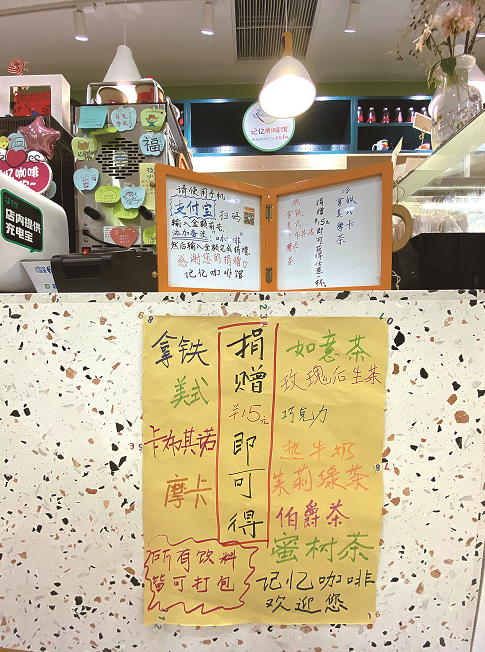 福
记忆咖啡馆
记忆咖啡
店内提供
充电宝
请使用手机
支付宝扫码
输入金额前先
添加备注:"咖啡"
然后输入金额完成捐赠,
感谢您的捐赠♡
记忆咖啡馆
捐赠¥15元即可得任意一杯.
拿铁
美式
卡布其诺
摩卡
捐赠
¥15元
即可得
如意茶
玫瑰后生茶
巧克力
热牛奶
茉莉绿茶
伯爵茶
蜜树茶
所有饮料
皆可打包
记忆咖啡
欢迎您